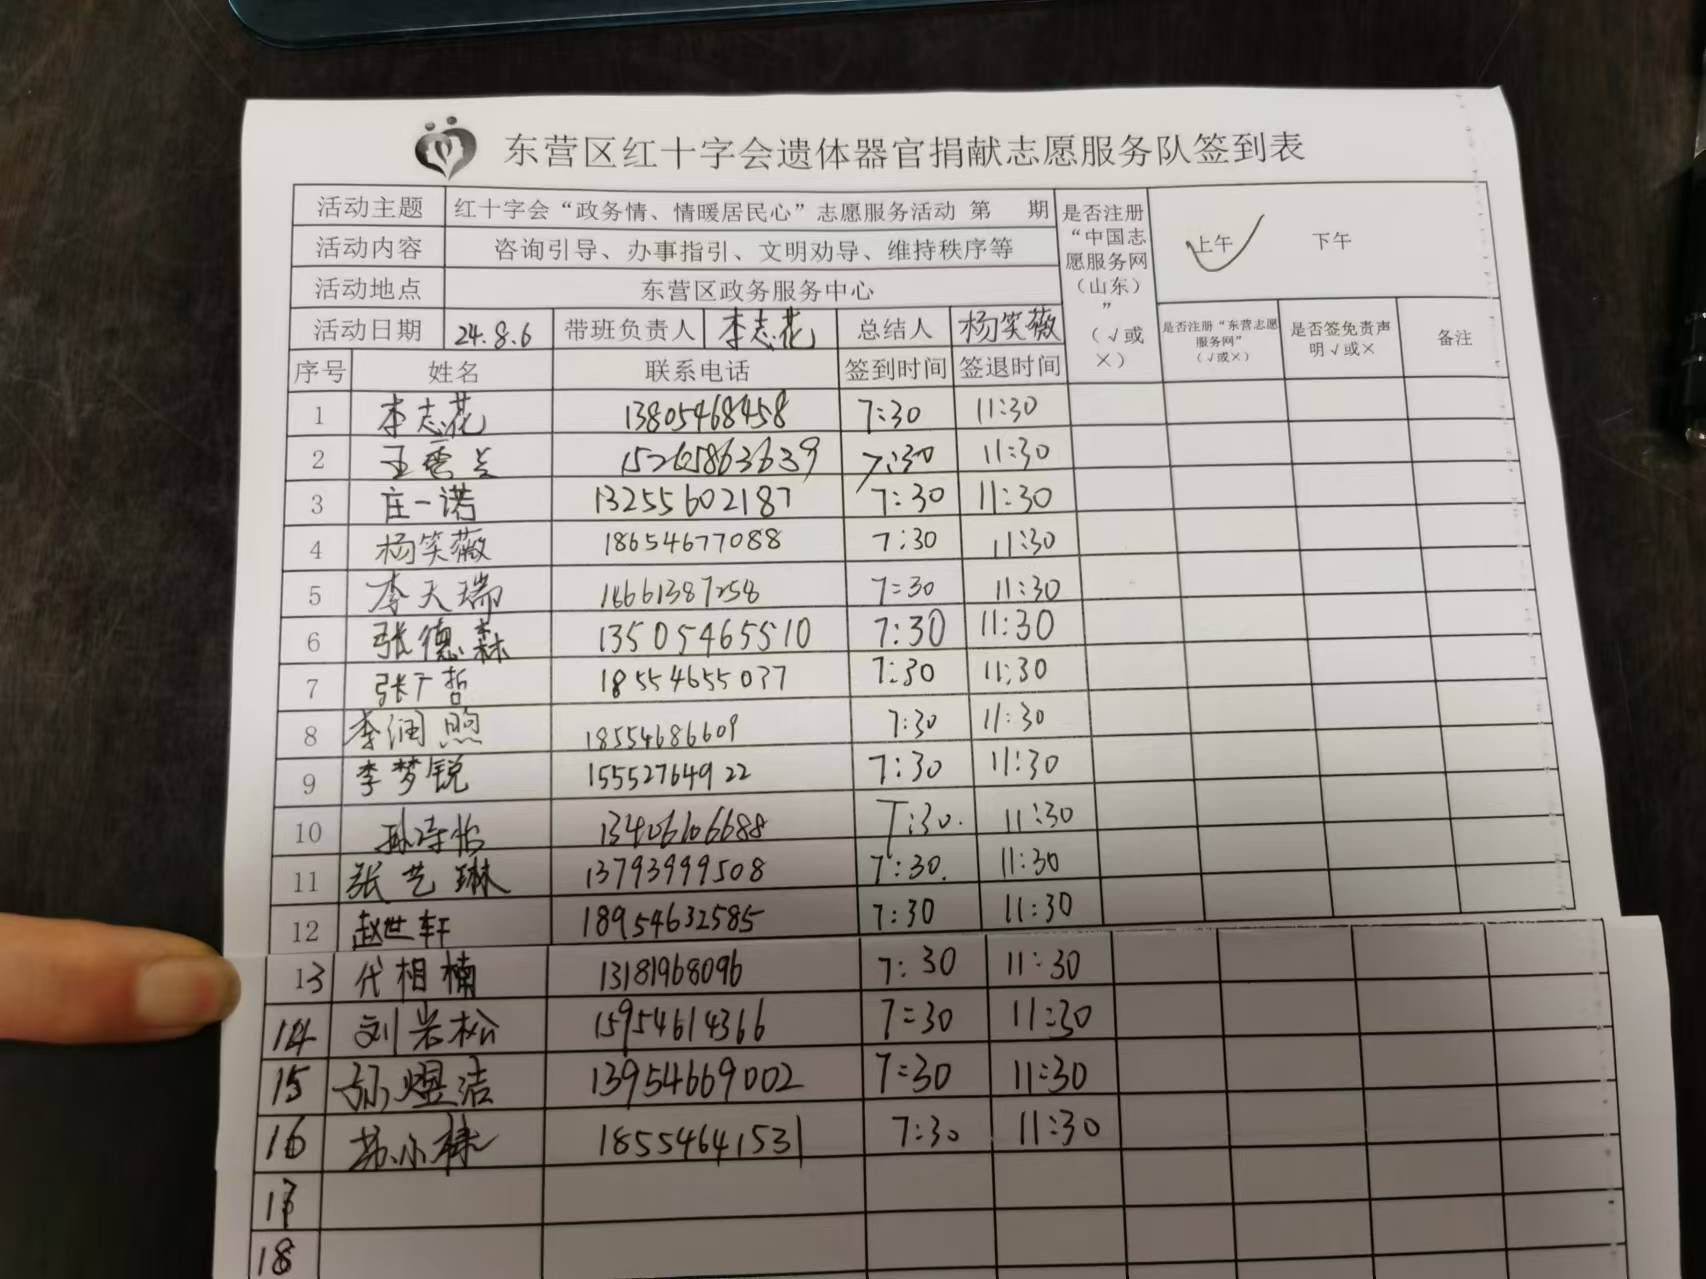 东营区红十字会遗体器官捐献志愿服务队签到表
活动主题 红十字会“政务情、情暖居民心”志愿服务活动 第 期
活动内容 咨询引导、办事指引、文明劝导、维持秩序等
活动地点 东营区政务服务中心
活动日期 24.8.6 带班负责人 李志花 总结人 杨笑薇
是否注册“中国志愿服务网（山东）”（√或×）
上午 下午
是否注册“东营志愿服务网”（√或×） 是否签免责声明√或× 备注
序号 姓名 联系电话 签到时间 签退时间
1 李志花 13805468458 7:30 11:30
2 15265863639 7:30 11:30
3 庄一诺 13255602187 7:30 11:30
4 杨笑薇 18654677088 7:30 11:30
5 李天瑞 7:30 11:30
6 张德森 13505465510 7:30 11:30
7 张广哲 18554655037 7:30 11:30
8 李润煦 18554686609 7:30 11:30
9 李梦锐 15552764922 7:30 11:30
10 孙诗怡 13406106688 7:30 11:30
11 张艺琳 13793999508 7:30 11:30
12 赵世轩 18954632585 7:30 11:30
13 代相楠 13181968096 7:30 11:30
14 刘岩松 15954614366 7:30 11:30
15 13954669002 7:30 11:30
16 18554641531 7:30 11:30
17
18